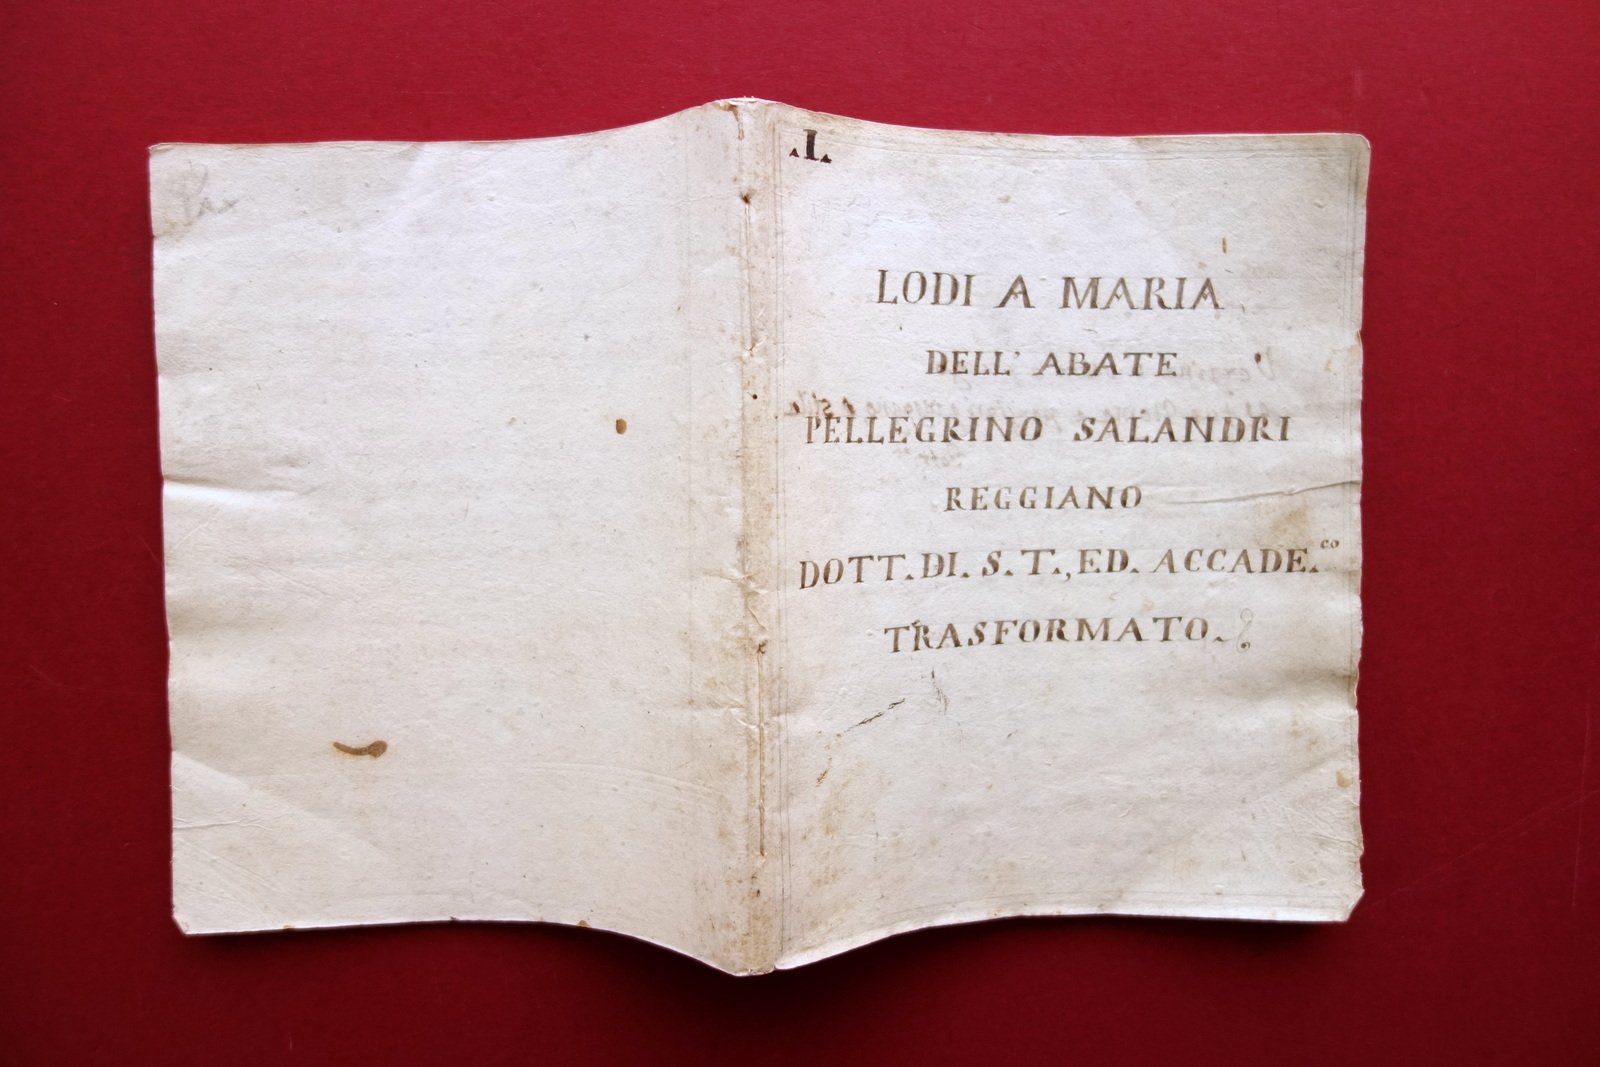 .I.
LODI A MARIA
DELL' ABATE
PELLEGRINO SALANDRI
REGGIANO
DOTT. DI. S. T., ED. ACCADE.co
TRASFORMATO.